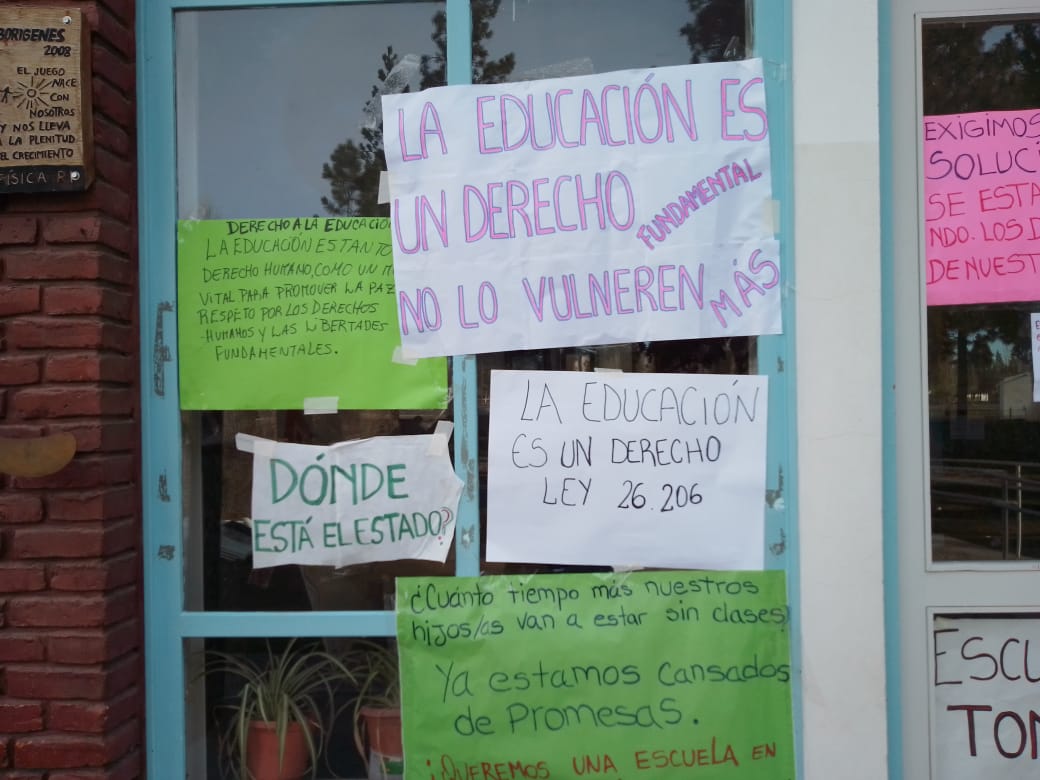 2008
EL JUEGO
NACE
CON
NOSOTROS
Y NOS LLEVA
A LA PLENITUD
EL CRECIMIENTO
FÍSICA
DERECHO A LA
LA EDUCACIÓN ES TANTO
DERECHO HUMANO, COMO UN
VITAL PARA PROMOVER LA PAZ
RESPETO POR LOS DERECHOS
HUMANOS Y LAS LIBERTADES
FUNDAMENTALES.
LA EDUCACIÓN ES
UN DERECHO
FUNDAMENTAL
NO LO VULNEREN
MÁS
DÓNDE
ESTÁ EL ESTADO?
LA EDUCACIÓN
ES UN DERECHO
LEY 26.206
¿Cuánto tiempo más nuestros
hijos/as van a estar sin clases?
Ya estamos cansados
de Promesas.
¡QUEREMOS UNA ESCUELA EN
EXIGIMOS
SOLUCI
SE ESTA
NDO. LOS D
DE NUEST
ESCU
TOM